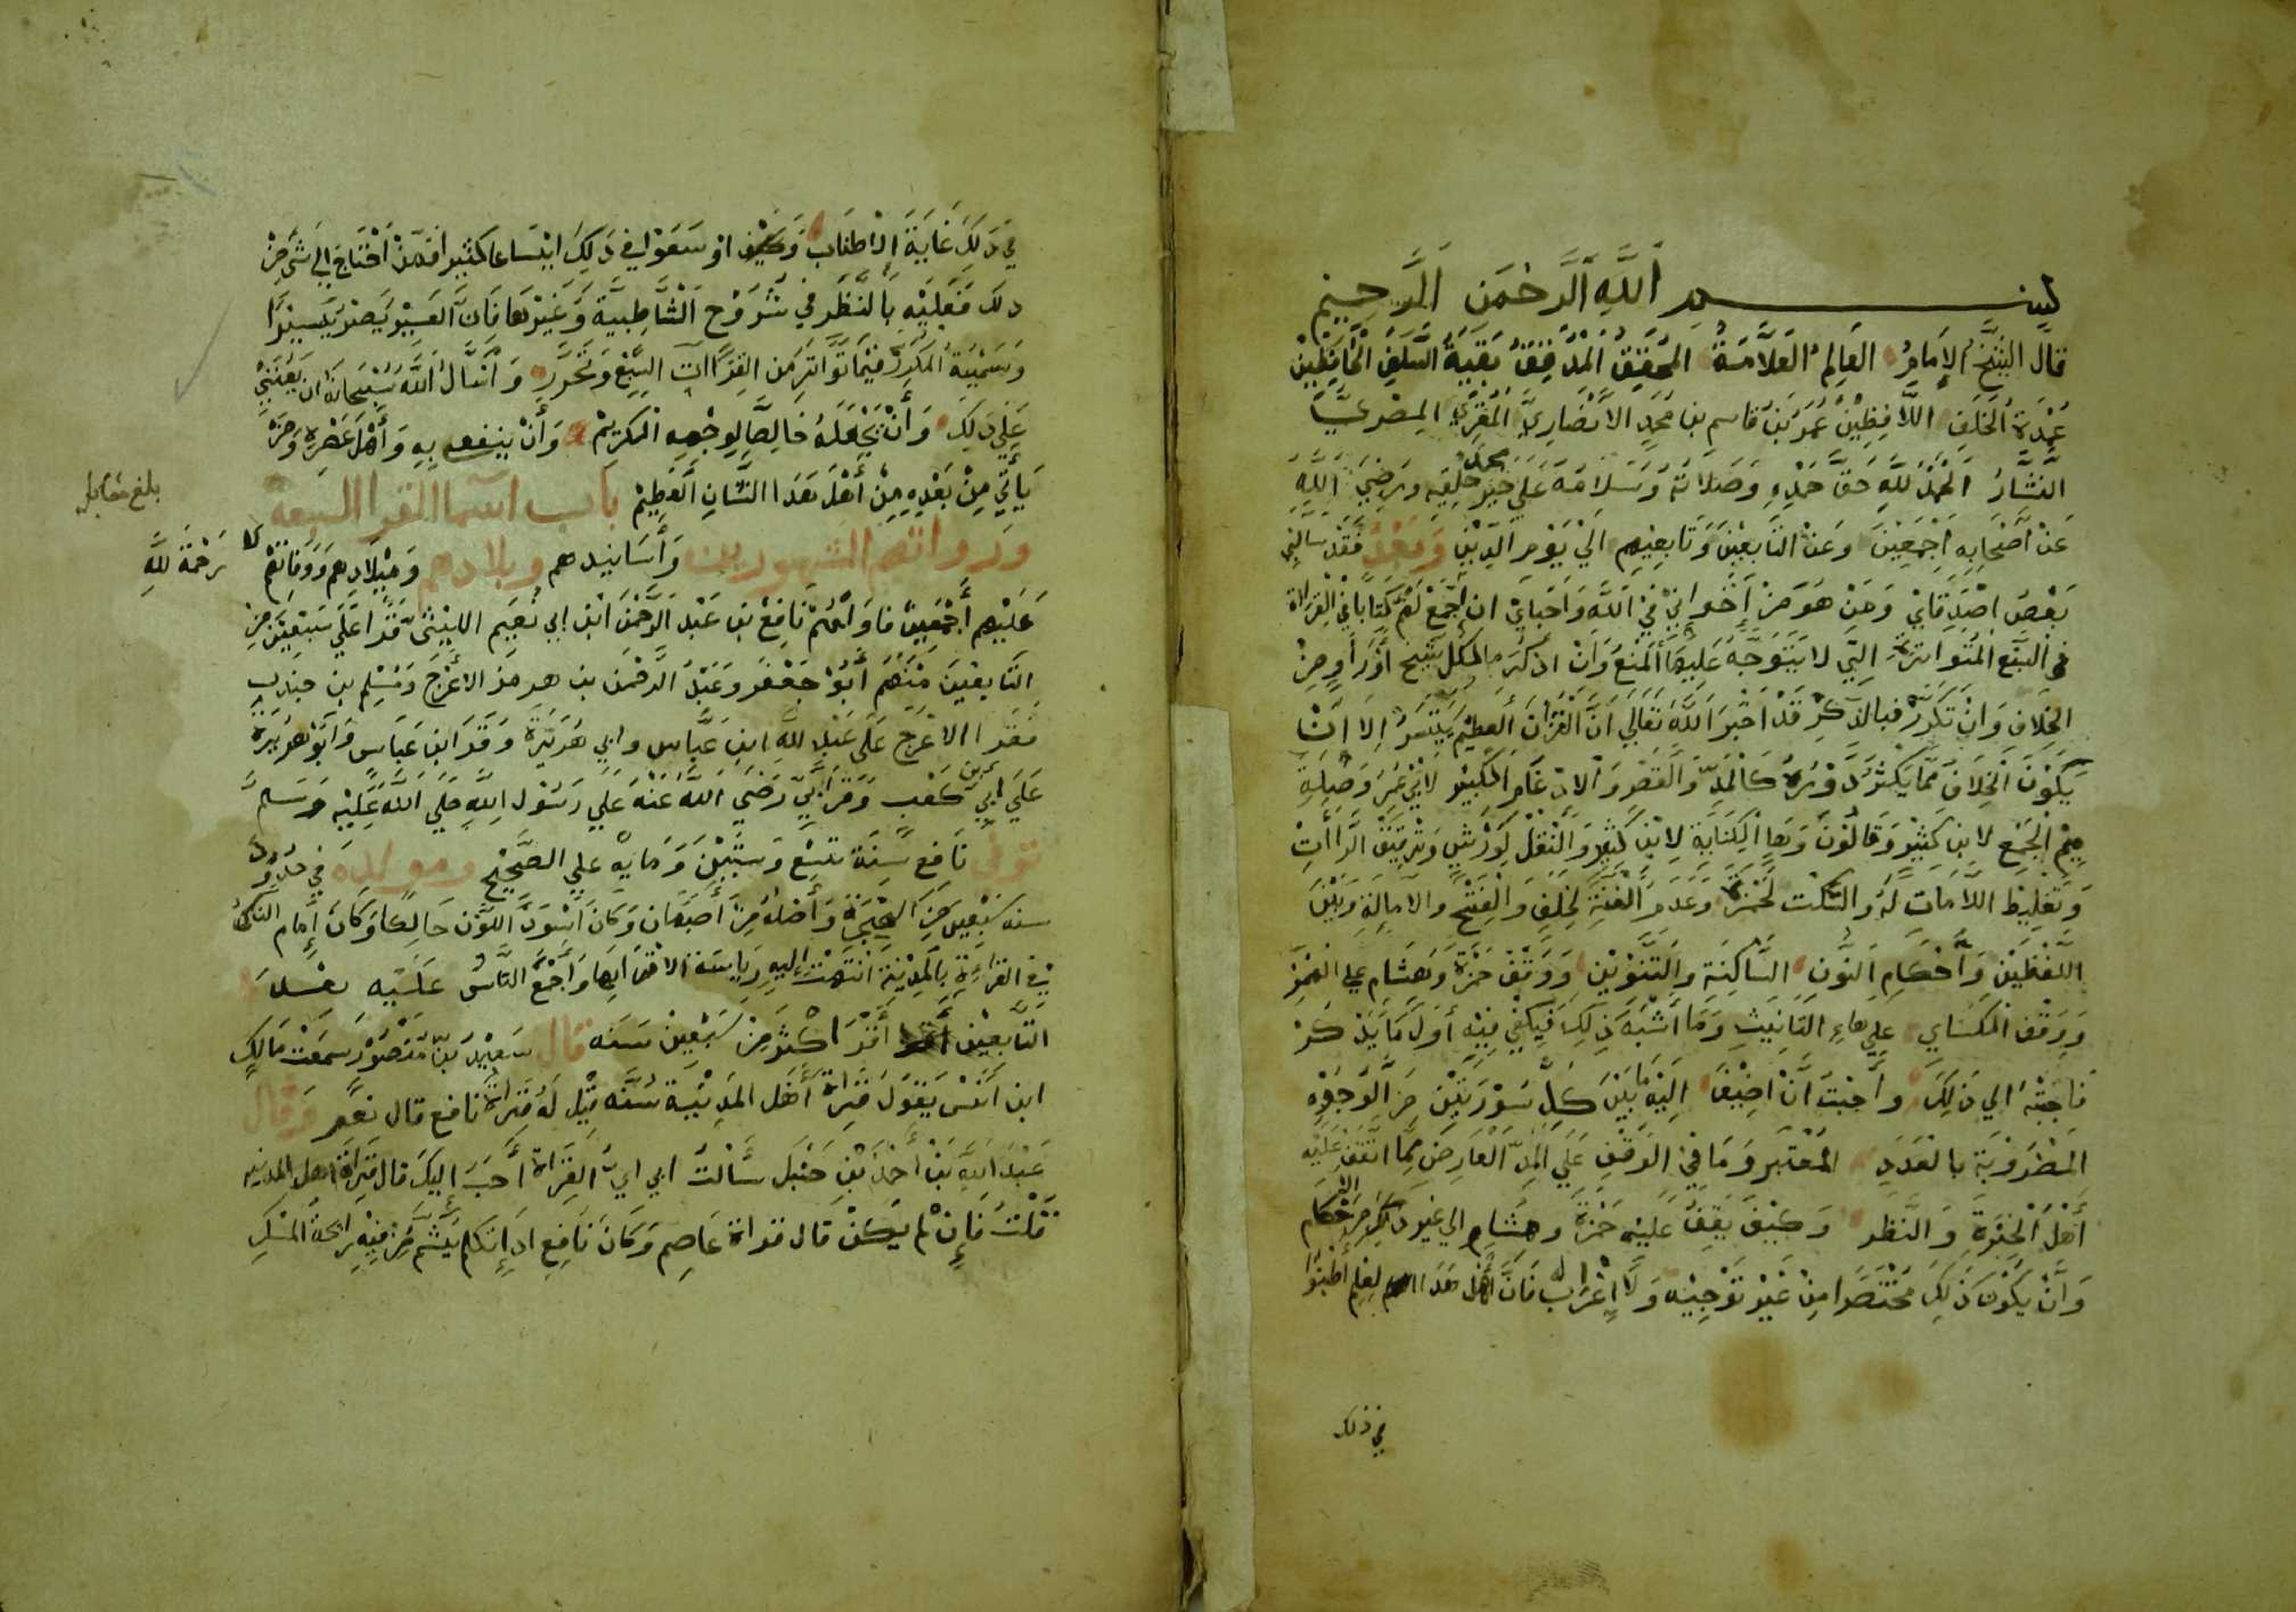 بسم الله الرحمن الرحيم
قال الشيخ الإمام العالم العلامة المحقق المدقق بقية السلف الحافظين
عمدة الخلف اللافظين عمر بن قاسم بن محمد الانصاري المقرئ المصري
النشار الحمد لله حق حمده وصلاته وسلامه على خير خلقه محمد ورضي الله
عن أصحابه اجمعين وعن التابعين وتابعيهم الي يوم الدين وبعد فقد سالني
بعض اصدقاي ومن هو من إخواني في الله واحباي ان اجمع لهم كتابا في القراة
في السبع المتواترة التي لا يتوجه عليها المنع وان اذكر ما لكل شيخ أو راو من
الخلاف وان تكرر فبالذكر قد اخبر الله تعالي ان القرآن العظيم يتيسر الا ان
يكون الخلاف مما يكثر دوره كالمد والقصر والادغام الكبير لابي عمر وصلة
ميم الجمع لابن كثير وقالون وهاء الكناية لابن كثير والنقل لورش وترقيق الراات
وتغليظ اللامات له والسكت لحمزة وعدم الغنة لخلف والفتح والامالة وبين
اللفظين وأحكام النون الساكنة والتنوين ووقف حمزة وهشام علي الهمز
ووقف الكساي علي هاء التانيث وما أشبه ذلك فيكفي فيه أول ما يذكر
فاجبته الي ذلك واحببت ان اضيف اليه ما بين كل سورتين من الوجوه
المضروبة بالعدد المعتبر وما في الوقف علي المد العارض مما اتفق عليه
أهل الخبرة والنظر وكيف يقف عليه حمزة وهشام الي غير ذلك من الاحكام
وان يكون ذلك مختصرا من غير توجيه ولا اعراب فان أهل هذا العلم أطنبوا
في ذلك
في ذلك غاية الاطناب وكيف او سعوا في ذلك اتساعا كثيرا فمن احتاج الي شي من
دلك فعليه بالنظر في شروح الشاطبية وغيرها فان العسير يصير يسيرا
وسميته المكرر فيما تواتر من القراات السبع وتحرر وأسأل الله سبحانه ان يعينني
علي ذلك وأن يجعله خالصا لوجهه الكريم وأن ينفع به وأهل عصره ومن
يأتي من بعده من أهل هذا الشان العظيم باب اسما القرا السبعة
ورواتهم المشهورين وأسانيدهم وبلادهم وميلادهم ووفاتهم
رحمة الله
بلغ مقابله
عليهم أجمعين فاولهم نافع بن عبد الرحمن ابن ابي نعيم الليثي قرا علي سبعين من
التابعين منهم أبو جعفر وعبد الرحمن بن هرمز الاعرج ومسلم بن جندب
فقرا الاعرج على عبد الله ابن عباس وابي هريرة وقرا ابن عباس وابو هريرة
على ابي بن كعب وقرا ابي رضي الله عنه علي رسول الله صلي الله عليه وسلم
توفي نافع سنة تسع وستين ومايه علي الصحيح ومولده في حدود
سنة سبعين من الهجرة وأصله من أصبهان وكان اسود اللون حالكا وكان إمام الناس
في القراءة بالمدينة انتهت اليه رياسة الاقرا بها وأجمع الناس عليه بعد
التابعين أقرأ اكثر من سبعين سنه قال سعيد بن منصور سمعت مالك
ابن انس يقول قراة أهل المدينة سنه قيل له قراة نافع قال نعم وقال
عبد الله بن أحمد بن حنبل سألت ابي اي القراة أحب اليك قال قراة اهل المدينه
قلت فإن لم يكن قال قراة عاصم وكان نافع اذا تكلم يشم من فيه رايحة المسك